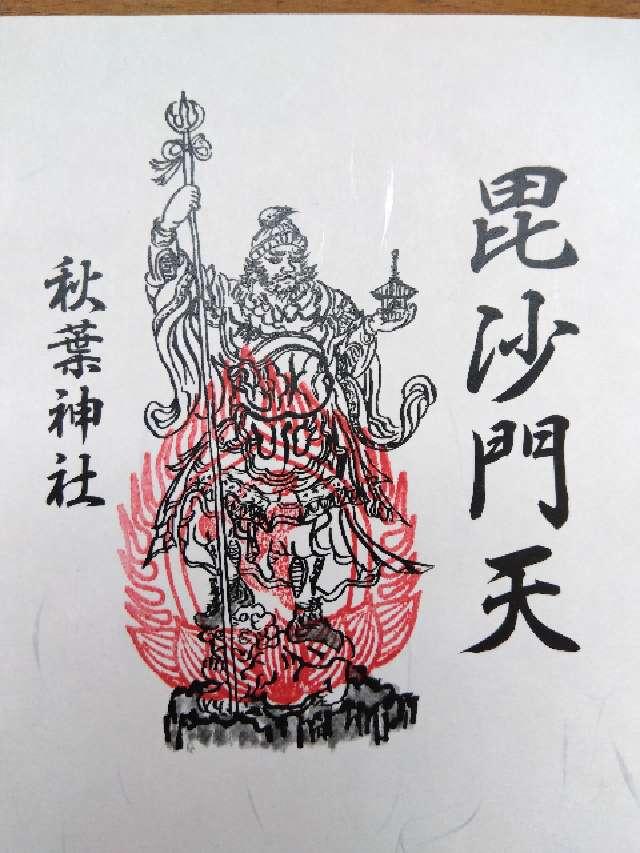 毘沙門天
秋葉神社